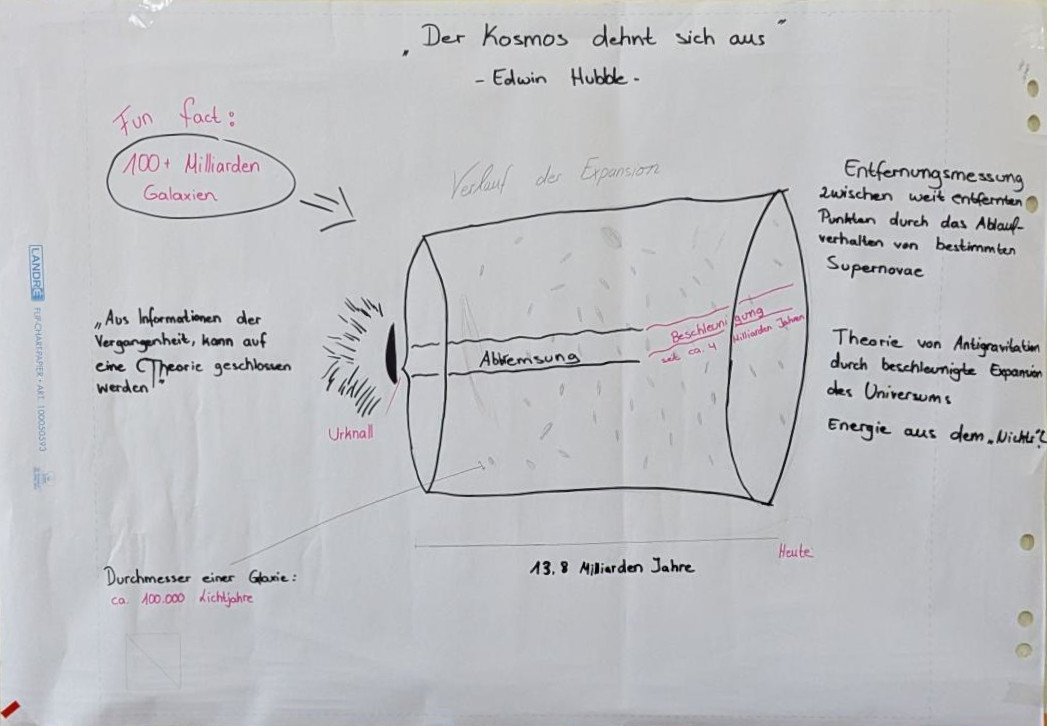 „Der Kosmos dehnt sich aus"
- Edwin Hubble -
Fun fact:
100+ Milliarden
Galaxien
Verlauf der Expansion
Entfernungsmessung
zwischen weit entfernten
Punkten durch das Ablauf-
verhalten von bestimmten
Supernovae
„Aus Informationen der
Vergangenheit, kann auf
eine Theorie geschlossen
werden!"
Urknall
Abbremsung
Beschleunigung
seit ca. 4 Milliarden Jahren
Theorie von Antigravitation
durch beschleunigte Expansion
des Universums
Energie aus dem „Nichts"?
Heute
13.8 Milliarden Jahre
Durchmesser einer Glaxie:
ca. 100.000 Lichtjahre
LANDRÉ FLIPCHARTPAPIER • ART. 100050593